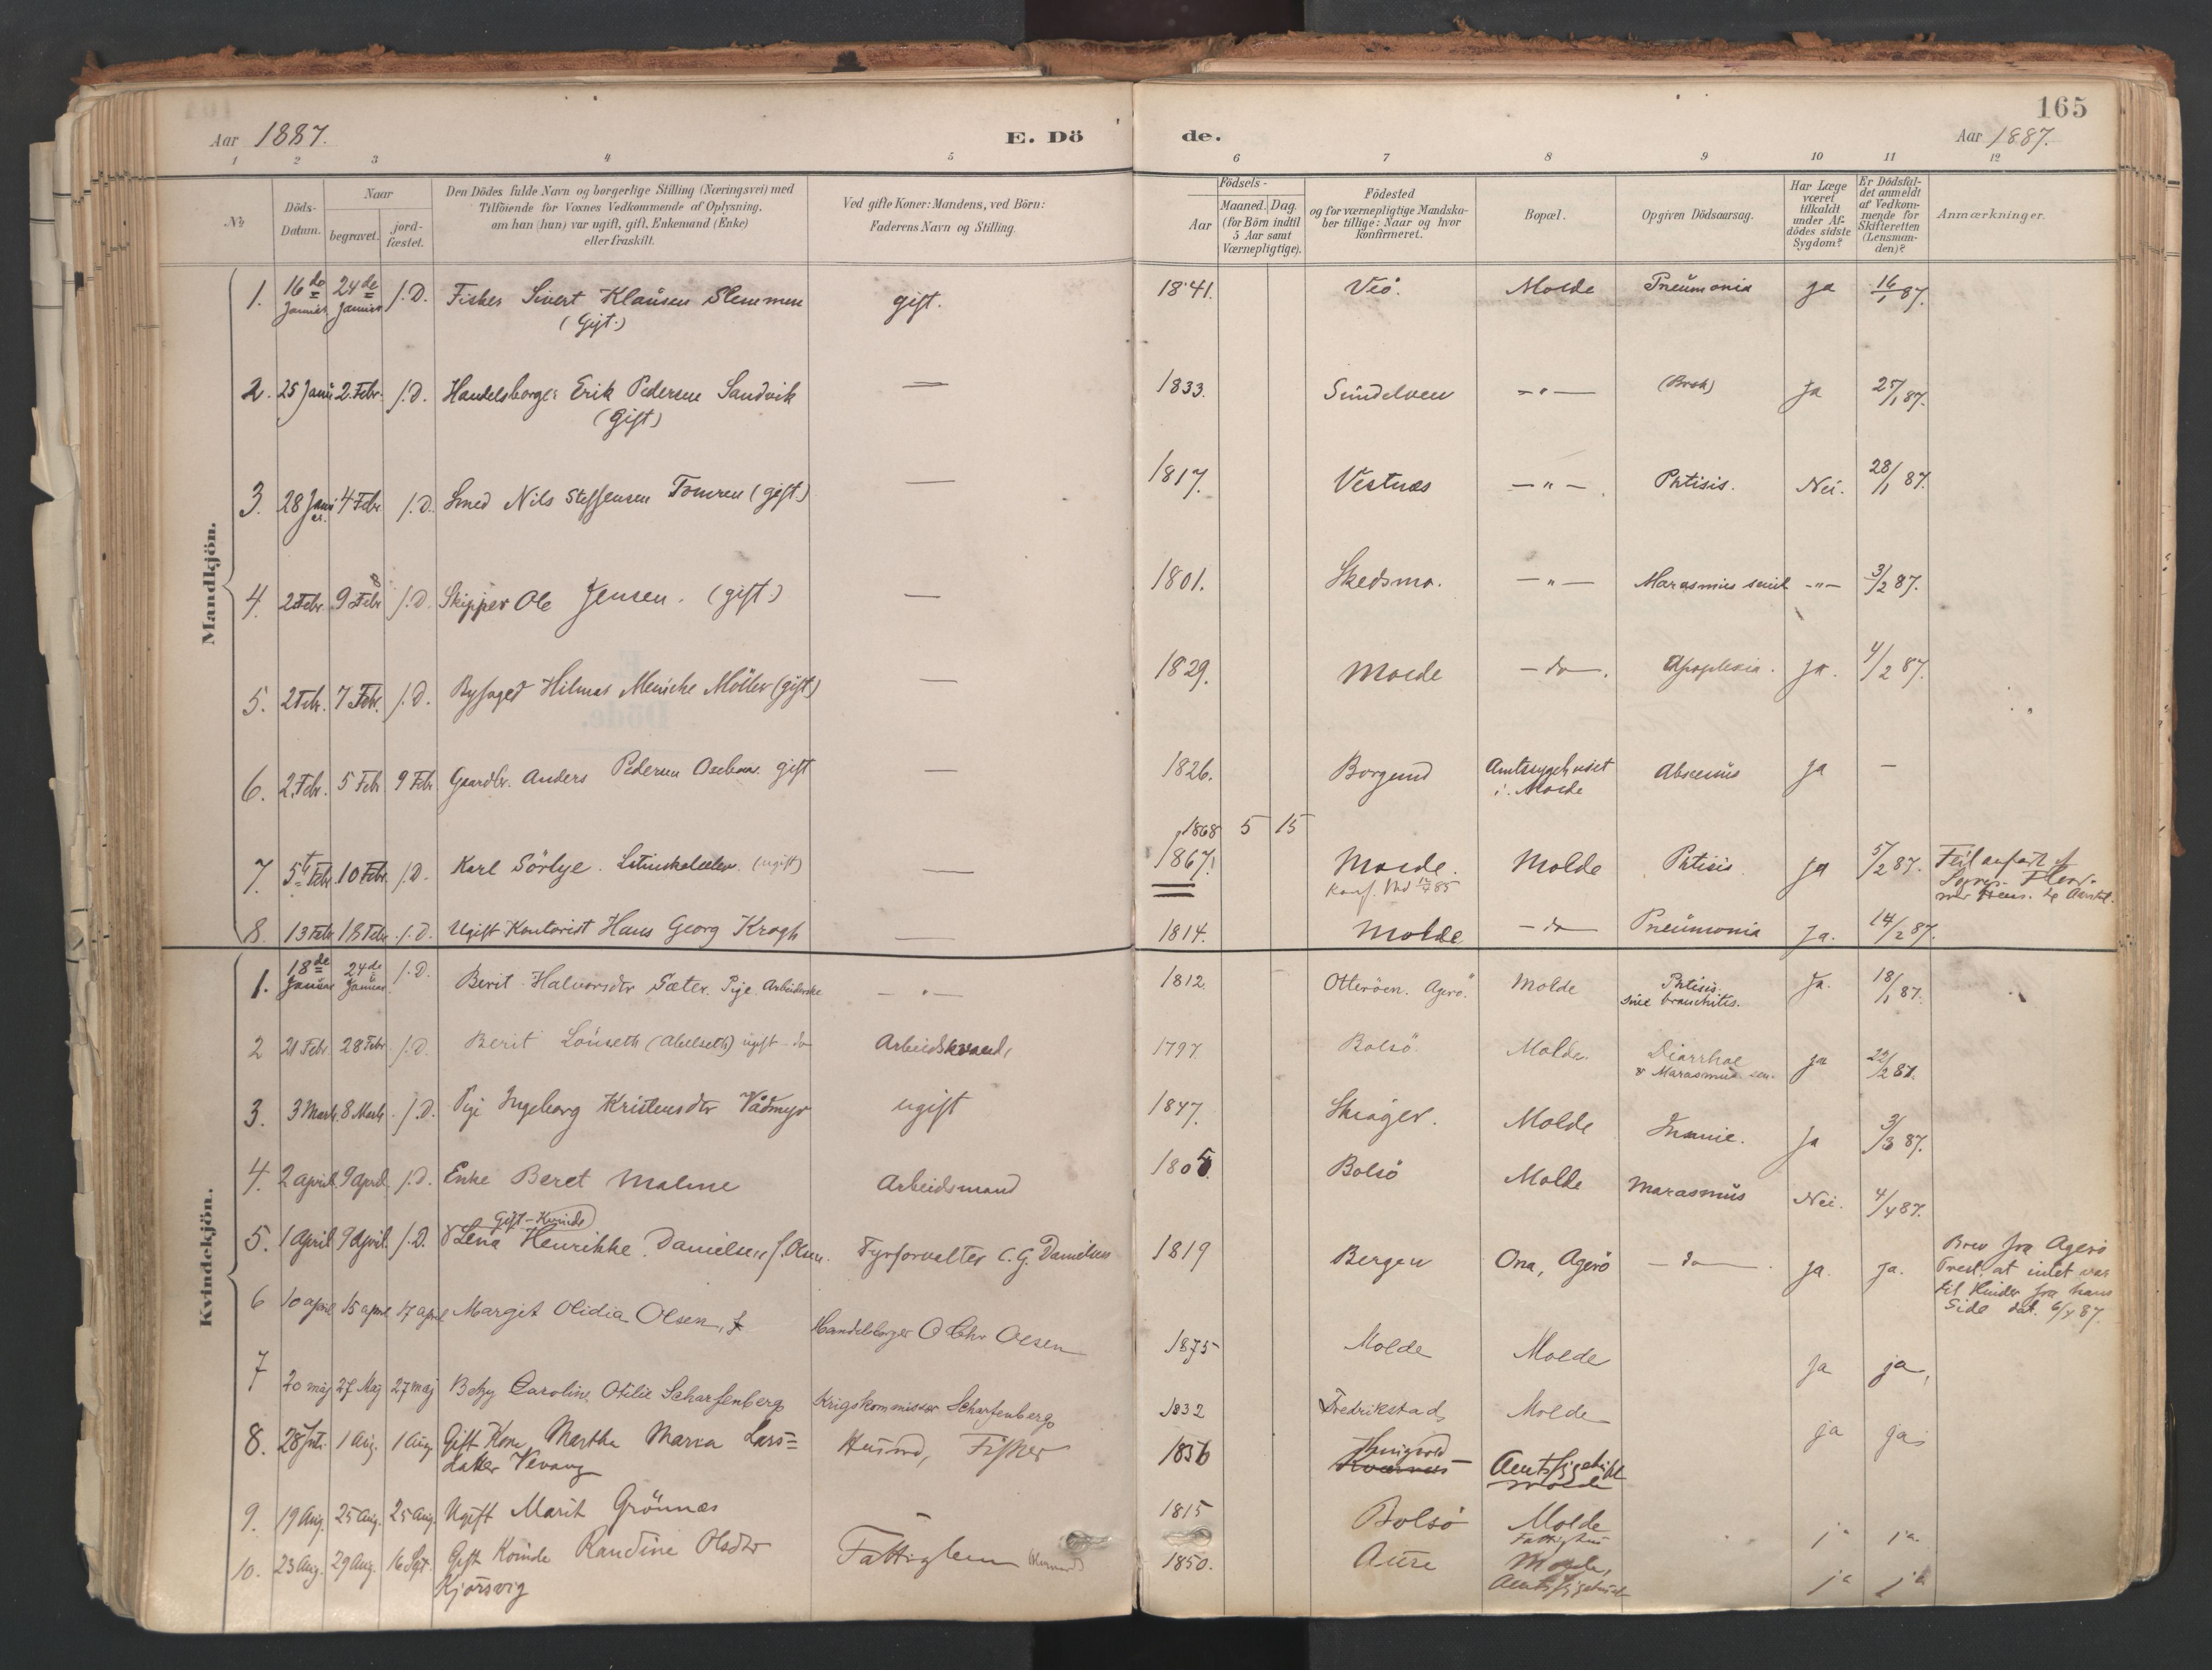 165
Aar 1887. E. Dö de. Aar 1887.
1 2 3 4 5 6 7 8 9 10 11 12
№
Döds-
Datum.
Naar
begravet.
jord-
fæstet.
Den Dödes fulde Navn og borgerlige Stilling (Næringsvei) med
Tilföiende for Voxnes Vedkommende af Oplysning,
om han (hun) var ugift, gift, Enkemand (Enke)
eller fraskilt.
Ved gifte Koner: Mandens, ved Börn:
Faderens Navn og Stilling.
Födsels-
Aar
Maaned. Dag.
(for Börn indtil
5 Aar samt
Værnepligtige).
Födested
og for værnepligtige Mandska-
ber tillige: Naar og hvor
konfirmeret.
Bopæl.
Opgiven Dödsaarsag.
Har Læge
været
tilkaldt
under Af-
dödes sidste
Sygdom?
Er Dödsfal-
det anmeldt
af Vedkom-
mende for
Skifteretten
(Lensman-
den)?
Anmærkninger.
Mandkjön.
1. 16de Januar 24de Januar J.D. Fisker Sivert Klausen Slemmen gift. 1841. Veö. Molde Pneumonia Ja 16/1 87.
(Gift.)
2. 25 Janu 2. Febr. J.D. Handelsborger Erik Pedersen Sandvik — 1833. Sundelven — " — (Brok) Ja 25/1 87.
(Gift)
3. 28 Janu 4 Febr J.D. Smed Nils Steffensen Tomren (gift) — 1817. Vestnes — " — Phtisis. Nei. 28/1 87.
4. 2 Febr. 9 Febr J.D. Skipper Ole Jensen. (gift) — 1801. Skedsmo. — " — Marasmus senil — " — 3/2 87.
5. 2 Febr. 7 Febr. J.D. Byfoged Hilmar Meincke Möller (gift) — 1829. Molde — do — Apoplexia. Ja. 4/2 87.
6. 2. Febr. 5 Febr 9 Febr Gaardbr. Anders Pedersen gift — 1826. Borgund Amtssygehuset Abscessus Ja —
i Molde
1868 5 15
7. 5te Febr. 10 Febr. J.D. Karl Sörbye. (ugift) — 1867. Molde. Molde Phtisis Ja 5/2 87. Feil
Konf. 85
8. 13 Febr 18 Febr. J.D. Ugift Kontorist Hans Georg Krogh — 1814. Molde — do — Pneumonia Ja. 14/2 87.
Kvindekjön.
1. 18de Januar 24de Januar. J.D. Berit Halvorsdtr Sæter. Pige. — " — 1812. Otteröen. Agerö. Molde Phtisis Ja. 18/1 87.
2 21 Febr. 28 Febr. J.D. Berit Lönseth ugift do 1797. Bolsö Molde. Diarrhoe Ja 22/2 87.
& Marasmus sen.
3. 3 Marts. 8 Marts. J.D. Pige Ingeborg Kristensdtr Vådmyr ugift 1847. Skiager. Molde Ja 3/3 87.
4. 2 april 9 April J.D. Enke Beret Malme Arbeidsmand 1805 Bolsö Molde Marasmus Nei. 4/4 87.
Gift-Kvinde
5. 1 April 9 April. J.D. Lena Henrikke Danielsen f. Olsen. Fyrforvalter C. G. Danielsen 1819 Bergen Ona, Agerö — do — Ja. Ja. Brev fra Agerö
Prest, at intet var
til Hinder fra hans
Side dat. 6/4 87.
6 10 april 15 april 17 april Margit Olidia Olsen, Handelsborger O Chr Olsen 1875 Molde Molde Ja ja,
7 20 maj 27 Maj 27 maj Betzy Caroline Otilie Scharfenberg Krigskommissær Scharfenberg 1832 Fredrikstad, Molde ja ja
8. 28 Juli 1 Aug. 1 Aug Gift Kone Martha Maria Lars= Husmd, Fisker 1856 Kværnes Amtssygehuset
datter Vevang Molde
9. 19 Aug. 25 Aug. 25 Aug. Ugift Marit Grönnæs — 1815 Bolsö Molde ja ja
Fattighus
10. 23 Aug. 29 Aug. 16 Sept. Gift Kvinde Randine Olsdtr Fattiglem 1850. Aure Molde, ja ja
Kjørsvig Amtssygehuset